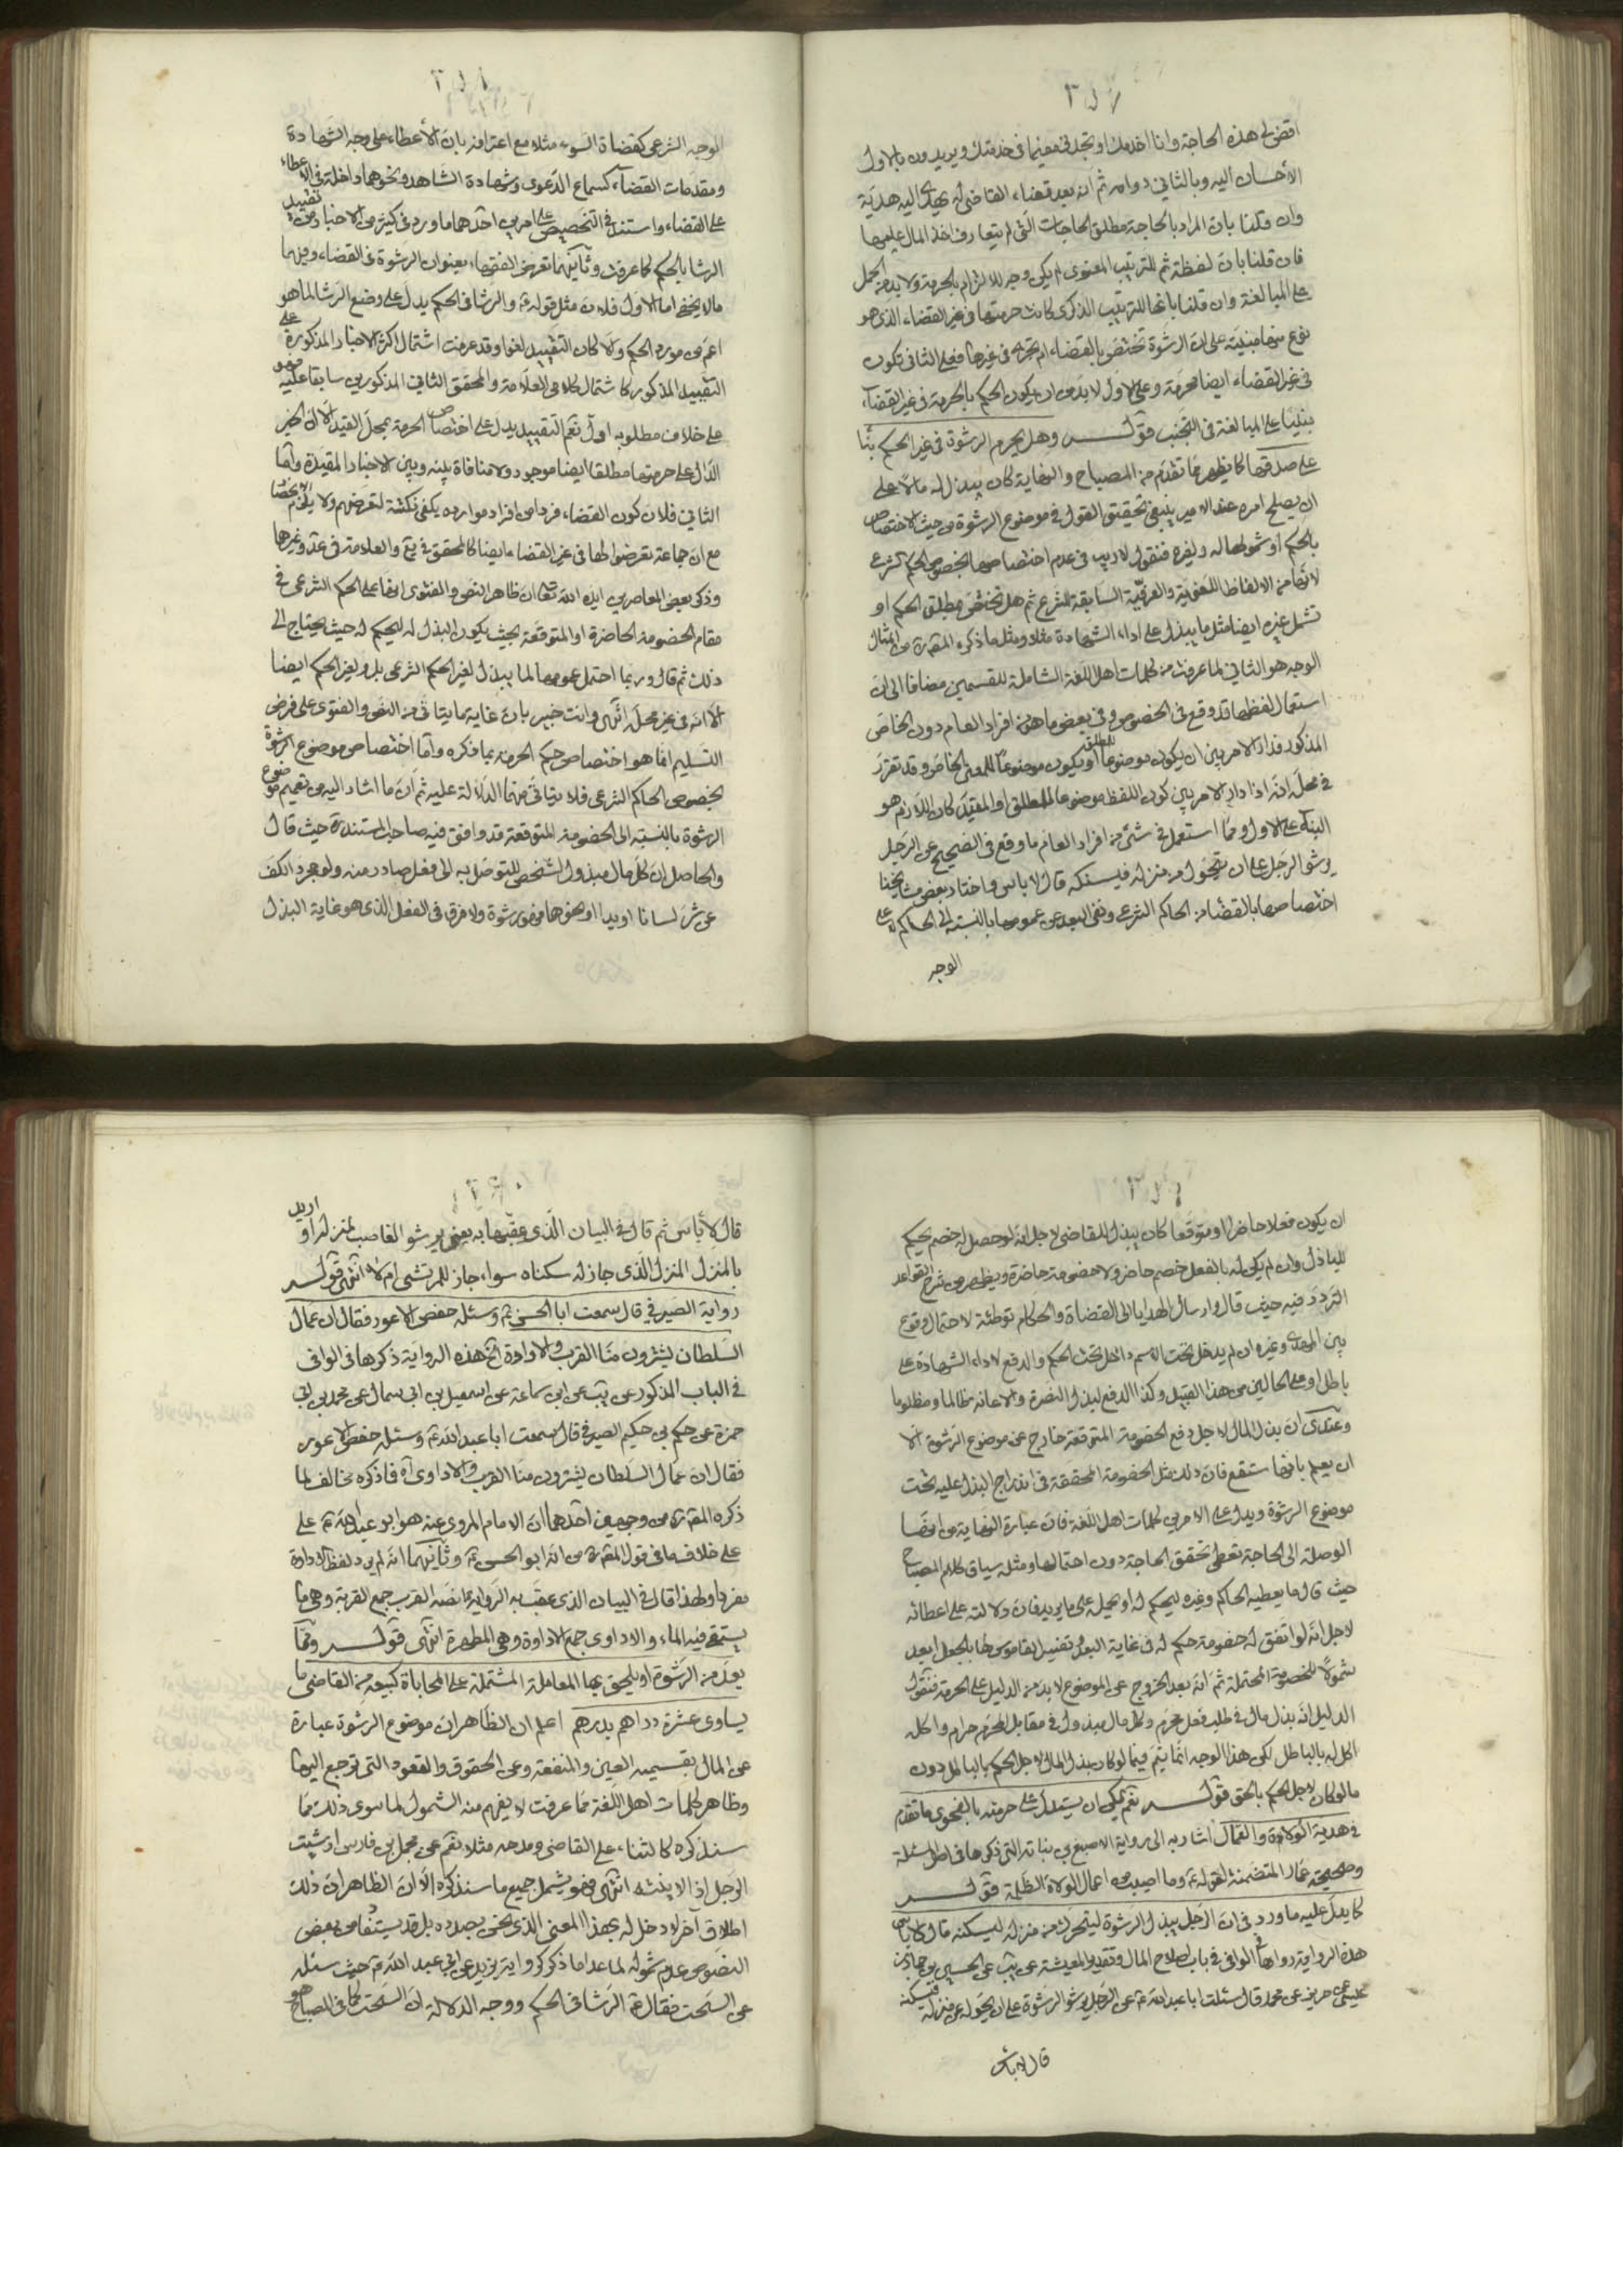 اقض لي هذه الحاجة وانا اخدمك او تجدني مقيما في خدمتك ويريدون بالاول
الأحسان اليه وبالثاني دوامه ثم انه بعد قضاء القاضي له يهدى اليه هدية
وان قلنا بان المراد بالحاجة مطلق الحاجات التي لم يتعارف اخذ المال عليها
فان قلنا بان لفظة ثم للترتيب المعنوى لم يكن وجه للالتزام بالحرمة ولا بد من الحمل
على المبالغة وان قلنا بانها للترتيب الذكرى كانت حرمتها في غير القضاء الذى هو
نوع منها مبنية على ان الرشوة تختص بالقضاء ام تجرى في غيرها فعلى الثاني تكون
في غير القضاء ايضا محرمة وعلى الاول لا بد من ان يكون الحكم بالحرمة في غير القضاء
مبنيا على المبالغة في التجنب قوله وهل يحرم الرشوة في غير الحكم بناء
على صدقها كما يظهر مما تقدم من المصباح والنهاية كان يبذل له مالا على
ان يصلح امره عند الامير ينبغي تحقيق القول في موضوع الرشوة من حيث الاختصاص
بالحكم او شمولها له ولغيره فنقول لا ريب في عدم اختصاصها بخصوص الحكم الشرعي
لانها من الالفاظ اللغوية والعرفية السابقة للشرع ثم هل تختص بمطلق الحكم او
تشمل غيره ايضا مثل ما يبذل على اداء الشهادة مثلا ومثل ما ذكره المص ره من المثال
الوجه هو الثاني لما عرفت من كلمات اهل اللغة الشاملة للقسمين مضافا الى ان
استعمال لفظها قد وقع في الخصوص وفي بعض ما هو من افراد العام دون الخاص
المذكور فدار الامر بين ان يكون موضوعا للمطلق او يكون موضوعا للمعنى الخاص وقد تقرر
في محله انه اذا دار الامر بين كون اللفظ موضوعا للمطلق او المقيد كان اللازم هو
البناء على الاول ومما استعمل في شئ من افراد العام ما وقع في الصحيح عن الرجل
يرشو الرجل على ان يتحول من منزله فيسكنه قال لا باس واختار بعض مشايخنا
اختصاصها بالقضاء من الحاكم الشرعي ونفى البعد عن عمومها بالنسبة الى الحاكم لا على
الوجه
الوجه الشرعي كقضاة السوء مثلا مع اعترافه بان الأعطاء على وجه الشهادة
ومقدمات القضاء كسماع الدعوى وشهادة الشاهد ونحوهما داخلة في الاعطاء
على القضاء واستند في التخصيص على امرين احدهما ما ورد في كثير من الاخبار من تقييد
الرشا بالحكم كما عرفت وثانيهما تعرض الفقهاء بعنوان الرشوة في القضاء وفيهما
ما لا يخفى اما الاول فلان مثل قوله ع والرشا في الحكم يدل على وضع الرشا لما هو
اعم من مورد الحكم والا كان التقييد لغوا وقد عرفت اشتمال اكثر الاخبار المذكورة على
التقييد المذكور كاشتمال كلامي العلامة والمحقق الثاني المذكورين سابقا عليه فهو
على خلاف مطلوبه اول نعم التقييد يدل على اختصاص الحرمة بمحل القيد الا ان الخبر
الدال على حرمتها مطلقا ايضا موجود ولا منافاة بينه وبين الاخبار المقيدة واما
الثاني فلان كون القضاء فردا من افراد موارده يكفي نكتة لتعرضهم ولا يلزم الاختصاص
مع ان جماعة تعرضوا لها في غير القضاء ايضا كالمحقق في يع والعلامة في عد وغيرها
وذكر بعض المعاصرين ايده الله تعا ان ظاهر النص والفتوى انها على الحكم الشرعي في
مقام الخصومة الحاضرة او المتوقعة بحيث يكون البذل له ليحكم له حيث يحتاج الى
ذلك ثم قال وربما احتمل عمومها لما يبذل لغير الحكم الشرعي بل ولغير الحكم ايضا
الا انه في غير محله انتهى وانت خبير بان غاية ما يتاتى من النص والفتوى على فرض
التسليم انما هو اختصاص حكم الحرمة بما ذكره واما اختصاص موضوع الرشوة
بخصوص الحاكم الشرعي فلا يتاتى منهما الدلالة عليه ثم ان ما اشار اليه من تعميم موضوع
الرشوة بالنسبة الى الخصومة المتوقعة قد وافق فيه صاحب المستند ره حيث قال
والحاصل ان كل مال مبذول الشخص للتوصل به الى فعل صادر منه ولو مجرد الكف
عن شره لسانا او يدا او نحوهما فهو رشوة ولا فرق في الفعل الذى هو غاية البذل
ان يكون فعلا حاضرا او متوقعا كان يبذل للقاضي لاجل انه لو حصل له خصم يحكم
للباذل وان لم يكن له بالفعل خصم حاضر ولا خصومة حاضرة ويظهر من شرح القواعد
التردد فيه حيث قال وارسال الهدايا الى القضاة والحكام توطئة لاحتمال وقوع
بين المهدى وغيره ان لم يدخل تحت الاسم داخل تحت الحكم والدفع لاداء الشهادة على
باطل او على الحالين من هذا القبيل وكذا الدفع لبذل النصرة والاعانة ظالما ومظلوما
وعندى ان بذل المال لاجل دفع الخصومة المتوقعة خارج عن موضوع الرشوة الا
ان يعلم بانها ستقع فان ذلك مثل الخصومة المحققة في اندراج البذل عليه تحت
موضوع الرشوة ويدل على الامرين كلمات اهل اللغة فان عبارة النهاية من انها
الوصلة الى الحاجة تعطى تحقق الحاجة دون احتمالها ومثله سياق كلام المصباح
حيث قال ما يعطيه الحاكم وغيره ليحكم له او يحمله على ما يريد فان دلالته على اعطائه
لاجل انه لو اتفق له خصومة حكم له في غاية البعد وتفسير القاموس لها بالجعل ابعد
شمولا للخصومة المحتملة ثم انه بعد الخروج عن الموضوع لا بد من الدليل على الحرمة فنقول
الدليل انه بذل مال في طلب فعل محرم وكل مال مبذول في مقابل المحرم حرام واكله
اكل له بالباطل لكن هذا الوجه انما يتم فيما لو كان بذل المال لاجل الحكم بالباطل دون
ما لو كان لاجل الحكم بالحق قوله نعم يمكن ان يستدل على حرمته بالفحوى ما تقدم
في هدية الولاة والعمال اشار به الى رواية الاصبغ بن نباته التي ذكرها في اول المسئلة
وصحيحة عمار المتضمنة لقوله ع وما اصيب من اعمال الولاة الظلمة قوله
كما يدل عليه ما ورد في ان الرجل يبذل الرشوة ليتحرك من منزله ليسكنه قال لا باس
هذه الرواية رواها في الوافي في باب اصلاح المال وتقدير المعيشة عن يب عن الحسين عن حماد بن
عيسى عن حريز عن محمد قال سئلت ابا عبد الله ع عن الرجل يرشو الرشوة على ان يتحول عن منزله فيسكنه
قال لا باس
قال لا بأس ثم قال في البيان الذى عقبها به يعني يرشو الغاصب لمنزله او اريد
بالمنزل المنزل الذى جاز له سكناه سواء جاز للمرتشى ام لا انتهى قوله
رواية الصيرفي قال سمعت ابا الحسن ع وسئله حفص الاعور فقال ان عمال
السلطان يشترون منا القرب والاداوة الخ هذه الرواية ذكرها في الوافي
في الباب المذكور عن يب عن ابن سماعة عن اسمعيل بن ابي سمال عن محمد بن ابي
حمزة عن حكم بن حكيم الصيرفي قال سمعت ابا عبد الله ع وسئله حفص الاعور
فقال ان عمال السلطان يشترون منا القرب والاداوى آه فما ذكره مخالف لما
ذكره المص ره من وجهين احدهما ان الامام المروى عنه هو ابو عبد الله ع على
على خلاف ما في قول المص ره من انه ابو الحسن ع وثانيهما انه لم يرد لفظ الاداوة
مفردا ولهذا قال في البيان الذى عقب به الرواية ما نصه القرب جمع القربة وهي ما
يستقى فيه الماء والاداوى جمع الاداوة وهي المطهرة انتهى قوله ومما
يعد من الرشوة او يلحق بها المعاملة المشتملة على المحاباة كبيعه من القاضي ما
يساوى عشرة دراهم بدرهم اعلم ان الظاهر ان موضوع الرشوة عبارة
عن المال بقسميه العين والمنفعة وعن الحقوق والعقود التي ترجع اليها
وظاهر كلمات اهل اللغة مما عرفت لا يفهم منه الشمول لما سوى ذلك مما
سنذكره كالثناء على القاضي ومدحه مثلا نعم عن مجمل ابن فارس ارشيت
الرجل اذا لاينته انتهى فهو يشمل جميع ما سنذكره الا ان الظاهر ان ذلك
اطلاق آخر لا دخل له بهذا المعنى الذى نحن بصدده بل قد يستفاد من بعض
النصوص عدم شموله لما عدا ما ذكر كرواية يزيد عن ابي عبد الله ع حيث سئله
عن السحت فقال ع الرشا في الحكم ووجه الدلالة ان السحت كما في المصباح هو